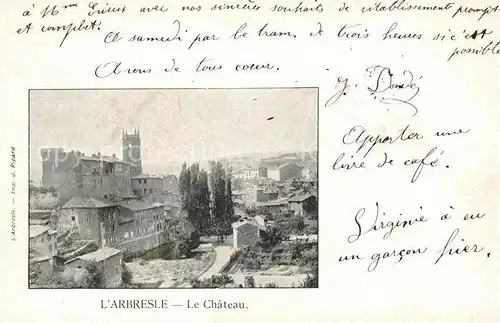 à Mme Grieux avec nos sincères souhaits de rétablissement prompt
et complet.
A samedi par le tram. de trois heures si c'est
possible
A vous de tout coeur.
J. Dondé
Apporter une
livre de café.
Virginie a eu
un garçon hier.
L'Arbresle. — Imp. J. Pipard
L'ARBRESLE — Le Château.